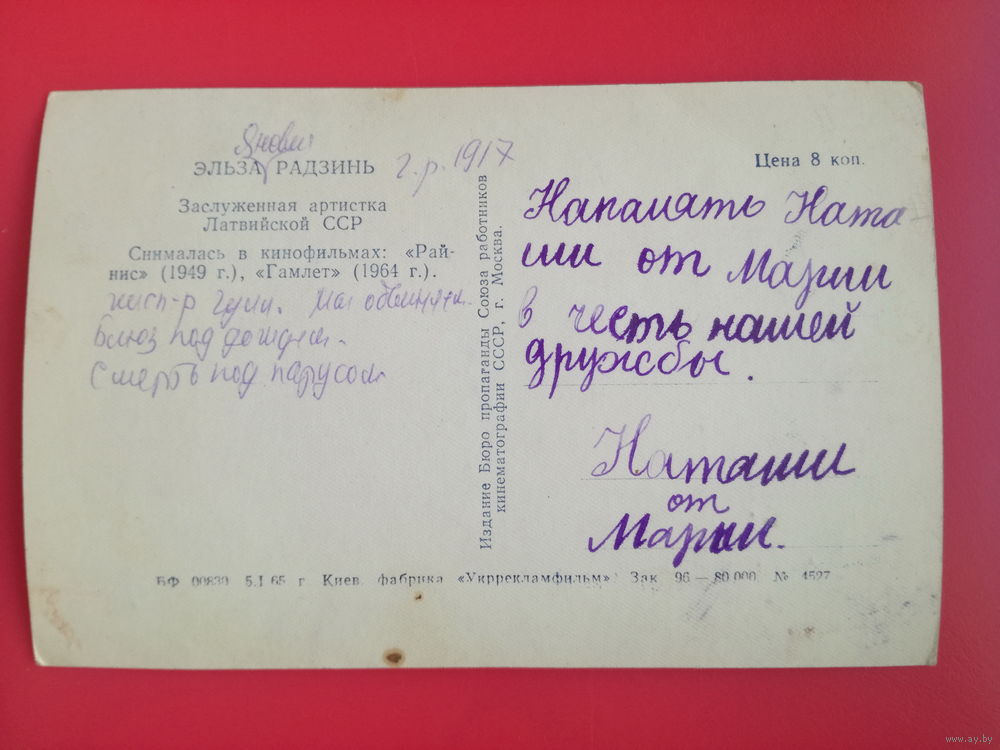 ЭЛЬЗА РАДЗИНЬ г.р. 1917
Заслуженная артистка
Латвийской ССР
Снималась в кинофильмах: «Рай-
нис» (1949 г.), «Гамлет» (1964 г.).
Блюз под дождем.
Смерть под парусом
Издание Бюро пропаганды Союза работников
кинематографии СССР, г. Москва.
Цена 8 коп.
Напамять Ната-
ши от Марии
в честь нашей
дружбы.
Наташи
от
Марии.
БФ 00830 5.I 65 г Киев. фабрика «Укррекламфильм» Зак 96 — 80.000 № 4527
www.ay.by